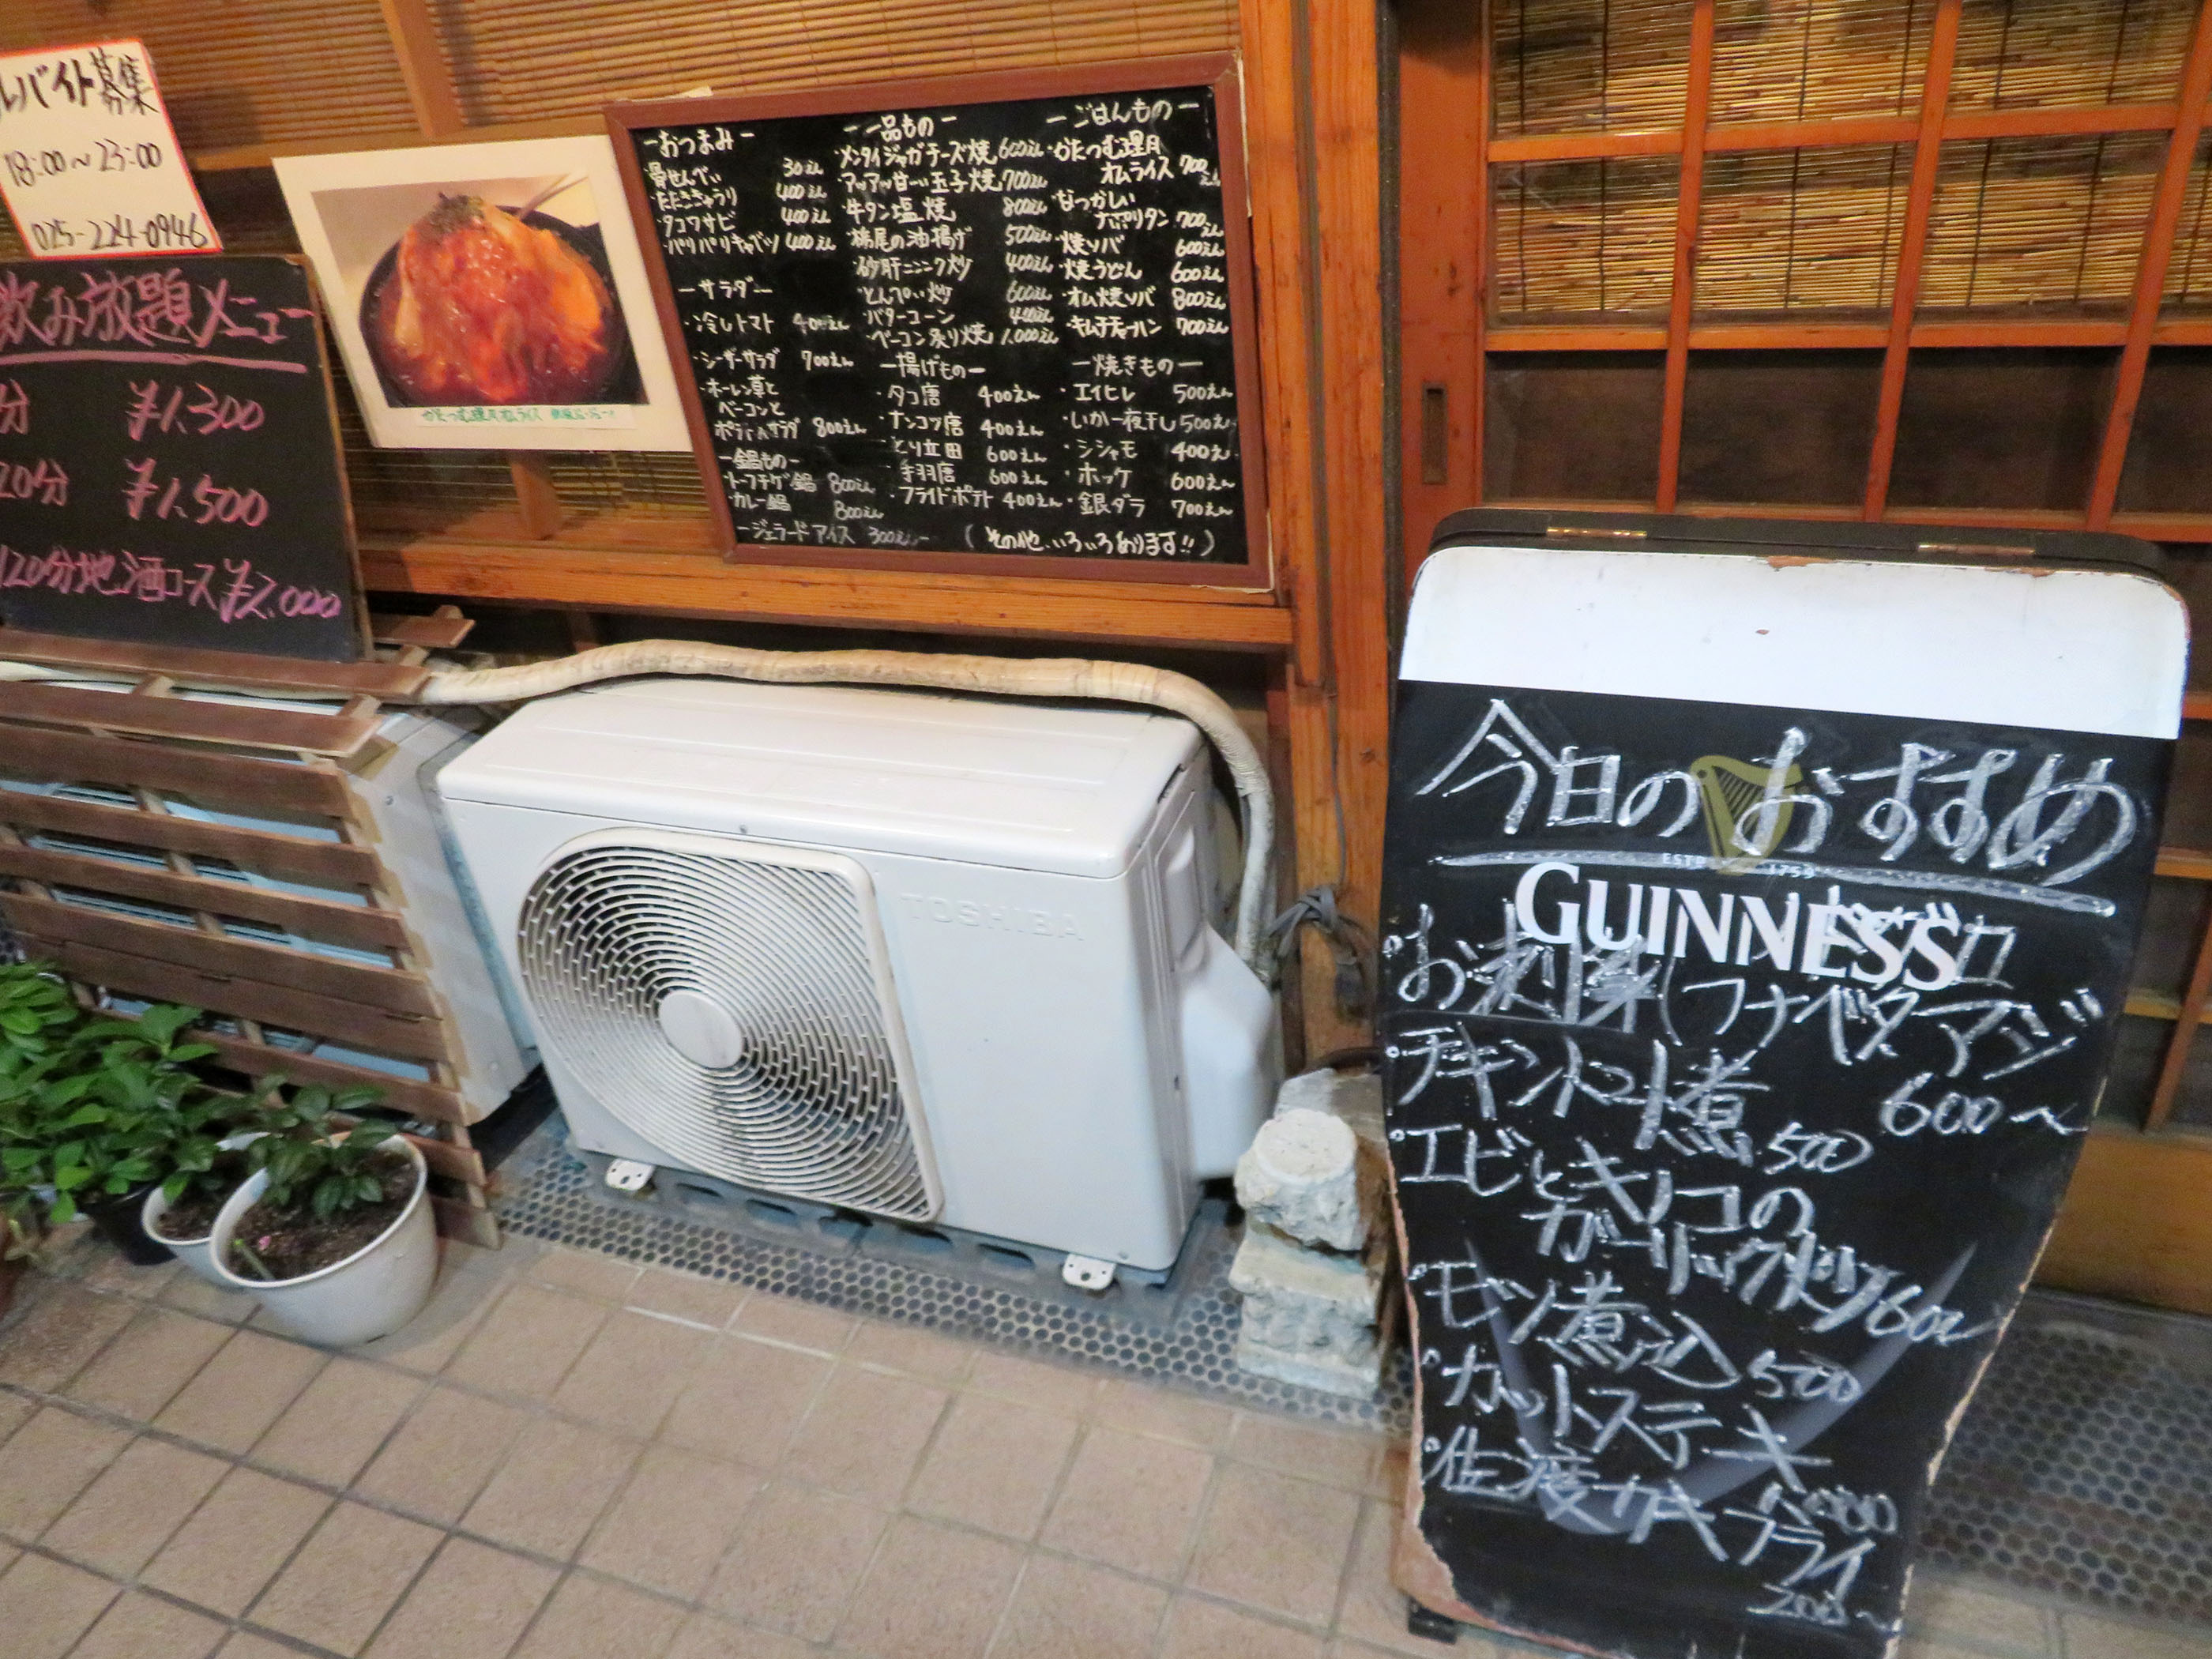 ルバイト募集
18:00～23:00
025-224-0946
飲み放題メニュー
分 ¥1.300
20分 ¥1.500
120分地酒コース¥2.000
かたつむ理月オムライス
ーおつまみー
・骨せんべい 30えん
・たたききゅうり 400えん
・タコワサビ 400えん
・パリパリキャベツ 400えん
ーサラダー
・冷しトマト 400えん
・シーザーサラダ 700えん
・ホーレン草と
ベーコンと
ポテトサラダ 800えん
ー鍋ものー
・トーフチゲ鍋 800えん
・カレー鍋 800えん
ージェラードアイス 300えんー
ー一品ものー
・メンタイジャガチーズ焼 600えん
・アッアッ甘〜い玉子焼 700えん
・牛タン塩焼 800えん
・栃尾の油揚げ 500えん
・砂肝ニンニク炒 400えん
・とんぺい炒 600えん
・バターコーン 400えん
・ベーコン炙り焼 1.000えん
ー揚げものー
・タコ唐 400えん
・ナンコツ唐 400えん
・とり立田 600えん
・手羽唐 600えん
・フライドポテト 400えん
ーごはんものー
・かたつむ理月
オムライス 700えん
・なつかしい
ナポリタン 700えん
・焼ソバ 600えん
・焼うどん 600えん
・オム焼ソバ 800えん
・キムチチャーハン 700えん
ー焼きものー
・エイヒレ 500えん
・いか一夜干し 500えん
・シシャモ 400えん
・ホッケ 600えん
・銀ダラ 700えん
(その他、いろいろあります!!)
TOSHIBA
今日のおすすめ
ESTD 1759
GUINNESS
お刺身(フナベタ アジ
600〜
チキントマト煮 500
エビとキノコの
ガーリック炒 600
モツ煮込 500
カットステーキ
佐渡カキフライ
200〜